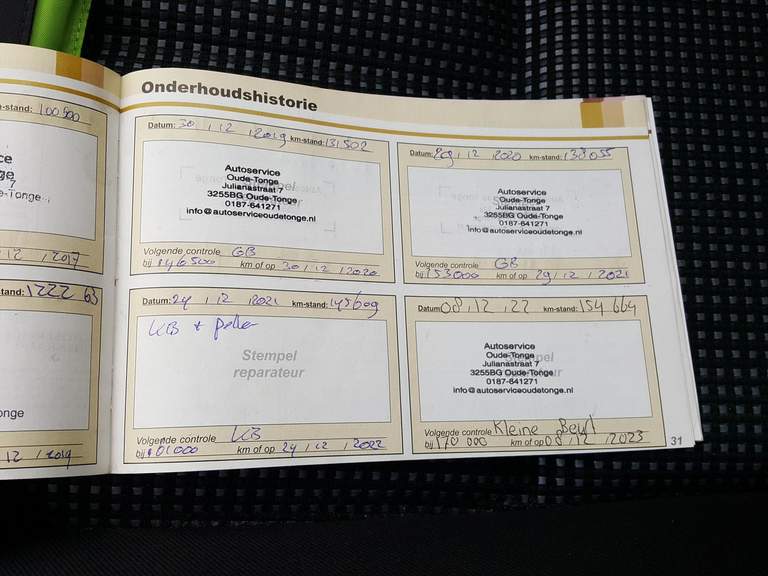 Onderhoudshistorie
-stand: 100500
ce
ge
7
e-Tonge
12 / 2017
tand: 1222 63
onge
12 / 2019
Datum: 30 / 12 / 2019 km-stand: 131502
Autoservice
Oude-Tonge
Julianastraat 7
3255BG Oude-Tonge
0187-641271
info@autoserviceoudetonge.nl
Volgende controle GB
bij 146500 km of op 30 / 12 / 2020
Datum: 29 / 12 2020 km-stand: 138055
Autoservice
Oude-Tonge
Julianastraat 7
3255BG Oude-Tonge
0187-641271
info@autoserviceoudetonge.nl
Volgende controle GB
bij 153000 km of op 29 / 12 / 2021
Datum: 24 / 12 / 2021 km-stand: 145609
KB +
Stempel
reparateur
Volgende controle KB
bij km of op 24 / 12 / 2022
Datum 08 / 12 / 22 km-stand: 154 664
Autoservice
Oude-Tonge
Julianastraat 7
3255BG Oude-Tonge
0187-641271
info@autoserviceoudetonge.nl
Volgende controle Kleine Beurt
bij 170 000 km of op 08 / 12 / 2023
31